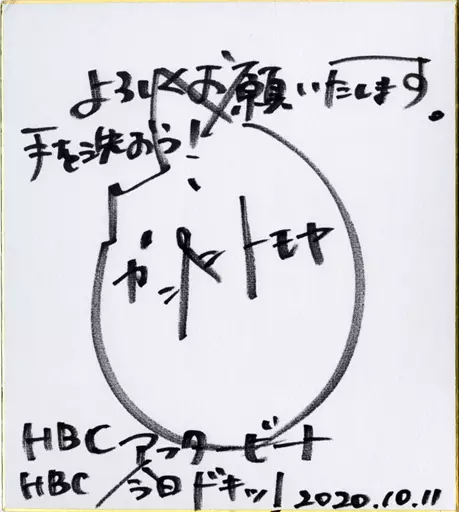 よろしくお願いいたします。
手を洗おう!
ガットトモヤ
HBC アフタービート
HBC 今日ドキッ! 2020.10.11